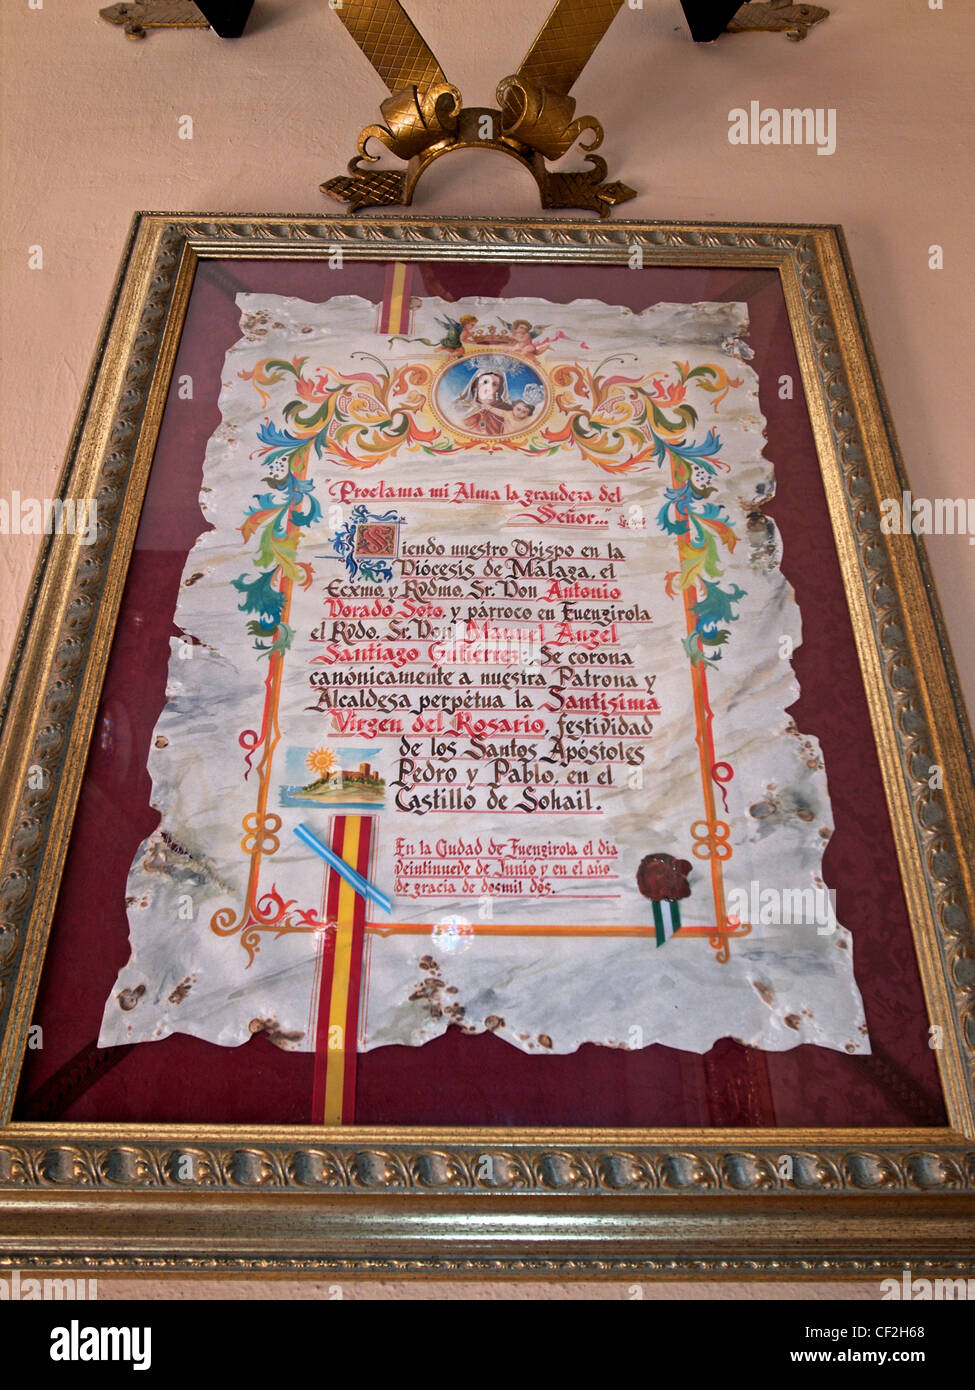 "Proclama mi Alma la grandeza del
Señor..."
Siendo nuestro Obispo en la
Diócesis de Málaga, el
Excmo y Rvdmo, Sr. Don Antonio
Dorado Soto, y párroco en Fuengirola
el Rvdo. Sr. Don Manuel Angel
Santiago Gutiérrez. Se corona
canónicamente a nuestra Patrona y
Alcaldesa perpétua la Santísima
Virgen del Rosario, festividad
de los Santos Apóstoles
Pedro y Pablo, en el
Castillo de Sohail.
En la Ciudad de Fuengirola el día
veintinueve de Junio y en el año
de gracia de dosmil dos.
alamy
a
alamy
Image ID: CF2H68
www.alamy.com